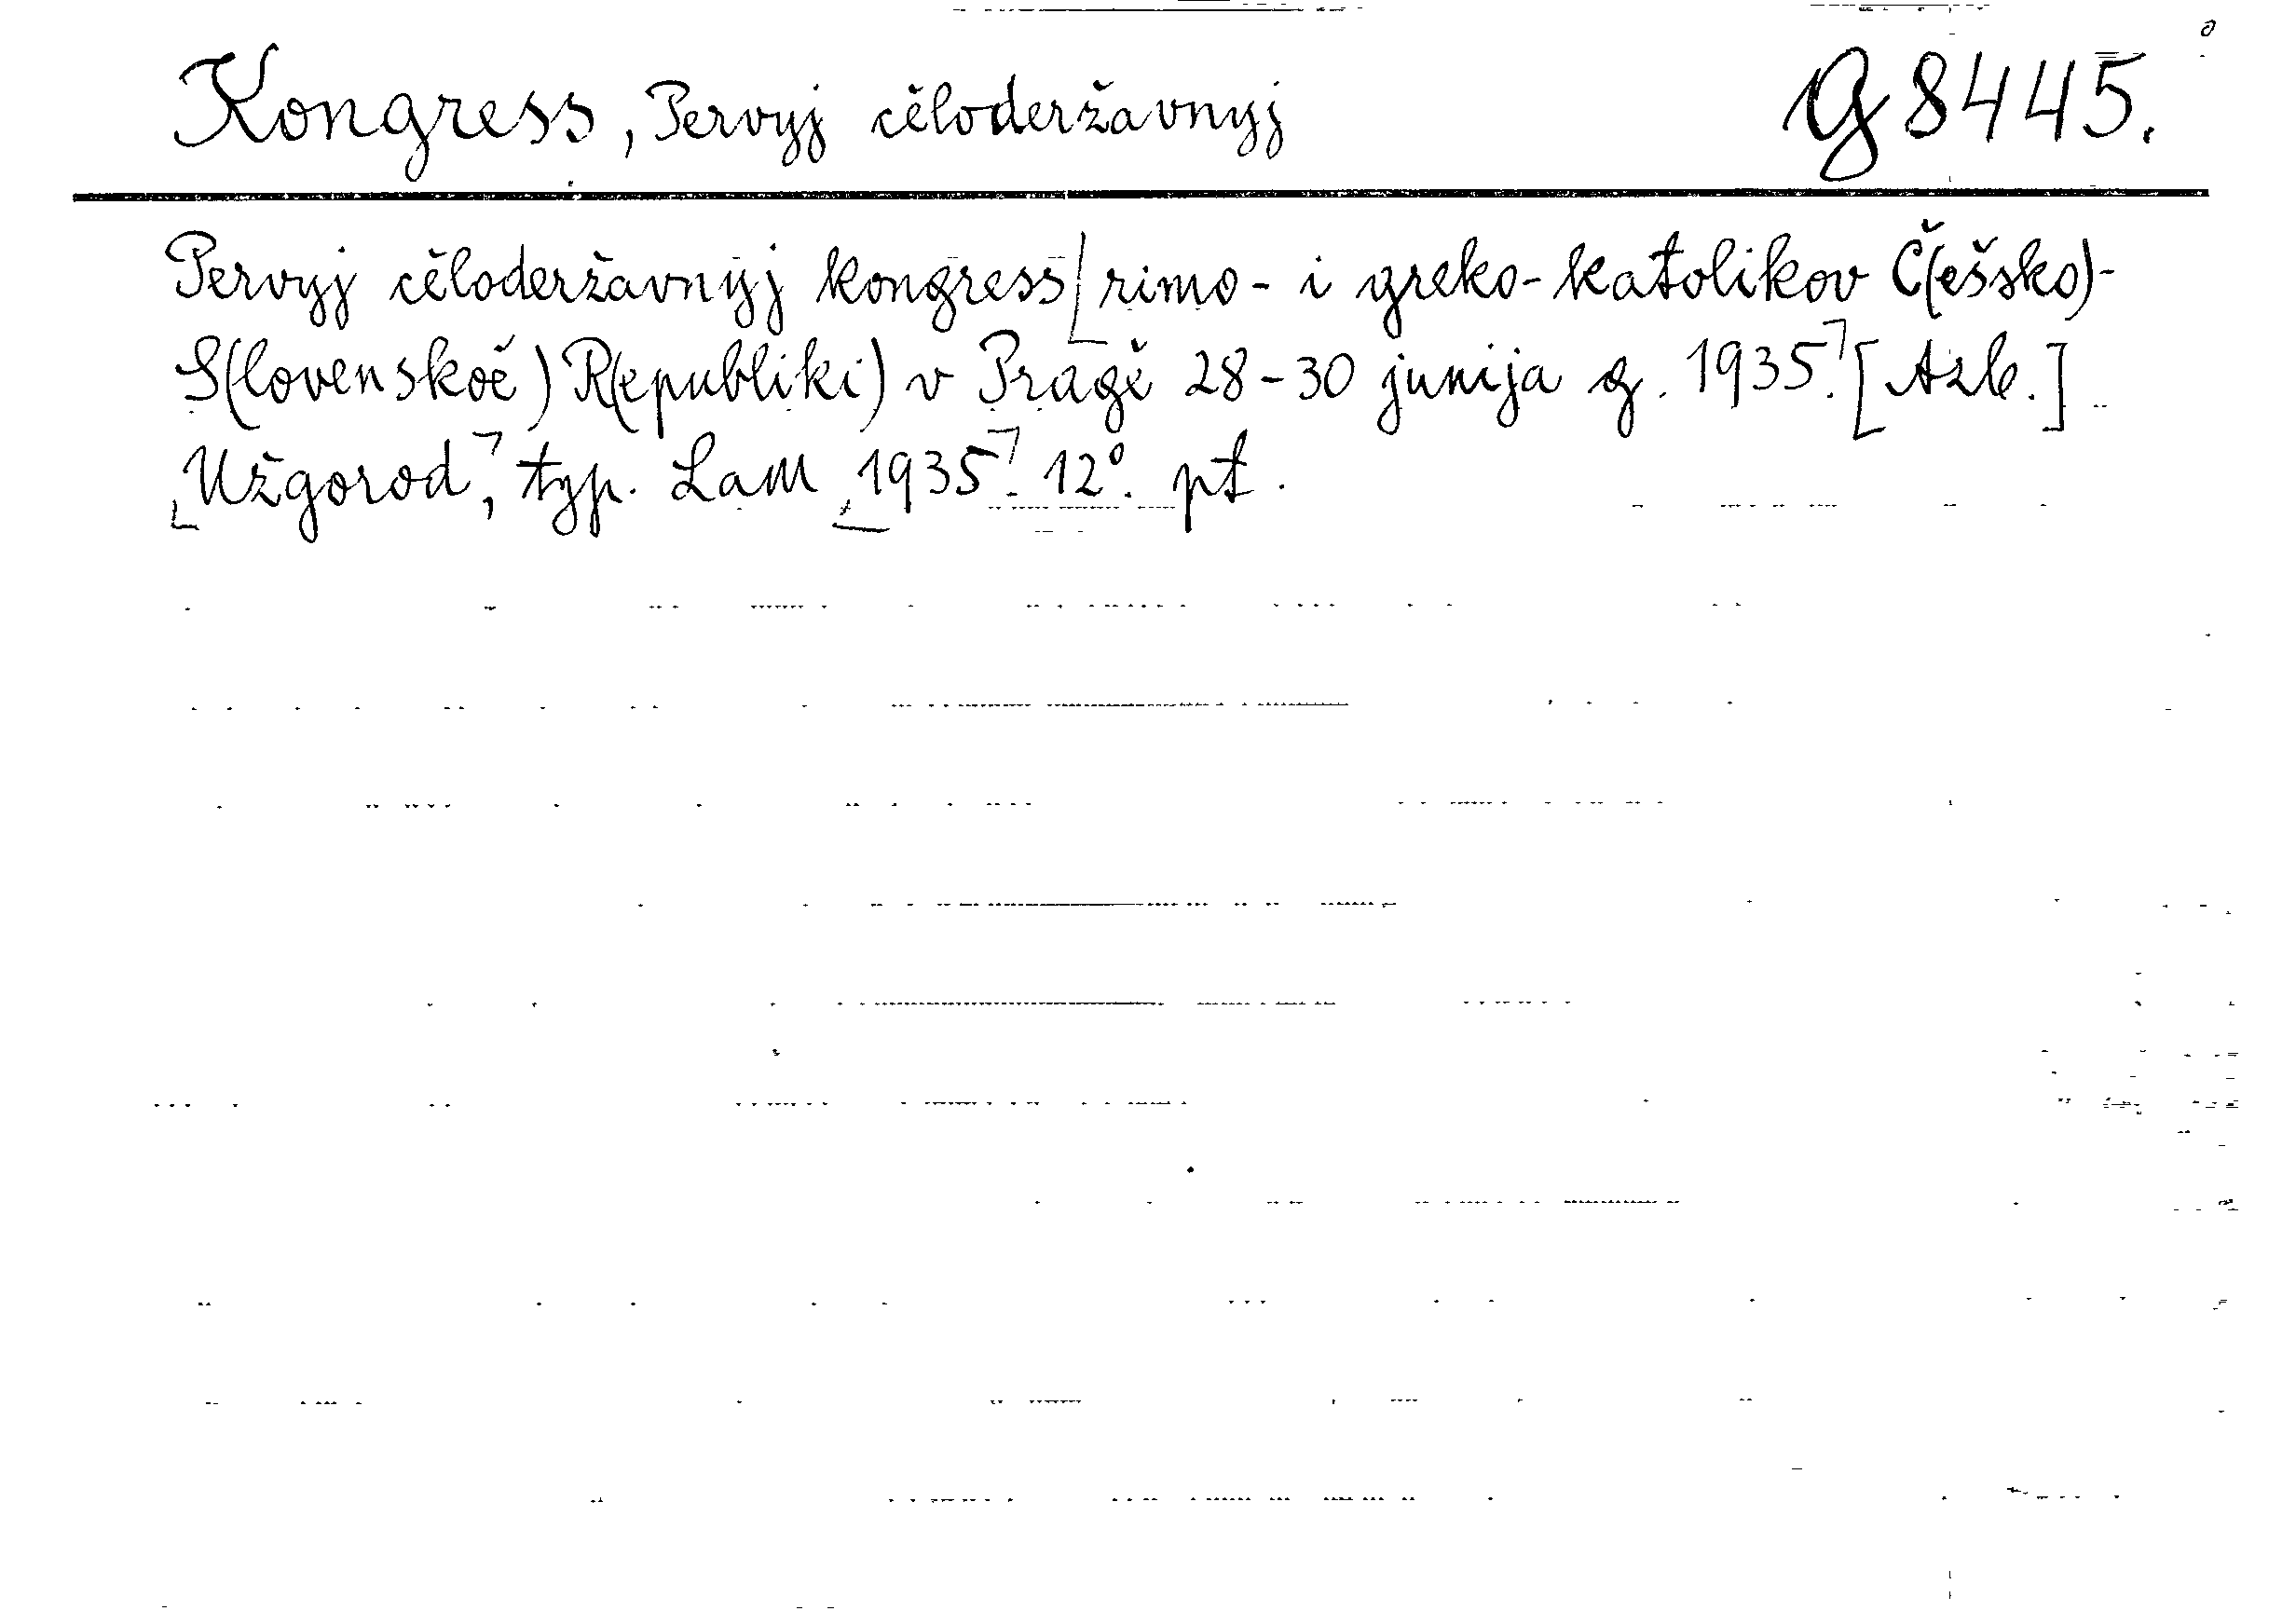 Kongress, Pervyj cěloderžavnyj G 8445.
Pervyj cěloderžavnyj kongress rimo- i greko-katolikov Č(ešsko)-
S(lovenskoě) R(epubliki) v Pragě 28-30 junija g. 1935. [Azb.]
Užgorod, typ. Lam 1935. 12°. pt.